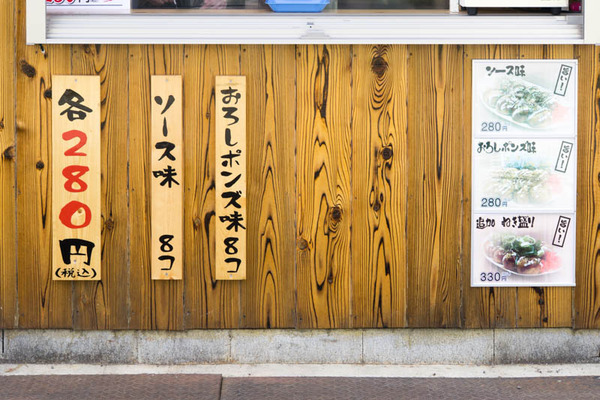 おろしポンズ味 8コ
ソース味 8コ
各280円
(税込)
ソース味
旨い!
280円
おろしポンズ味
旨い!
280円
追加 ねぎ盛り
旨い!
330円